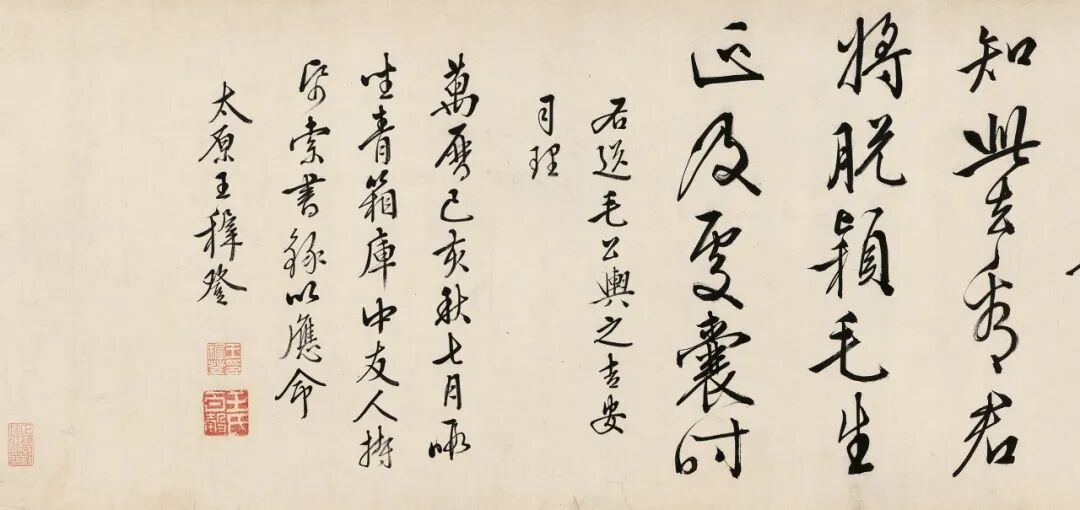 知此去看君
將脫穎毛生
正及處囊時
右送毛公輿之吉安
司理
萬曆己亥秋七月晦
坐青箱庫中友人持
紙索書錄以應命
太原王穉登
王氏百穀